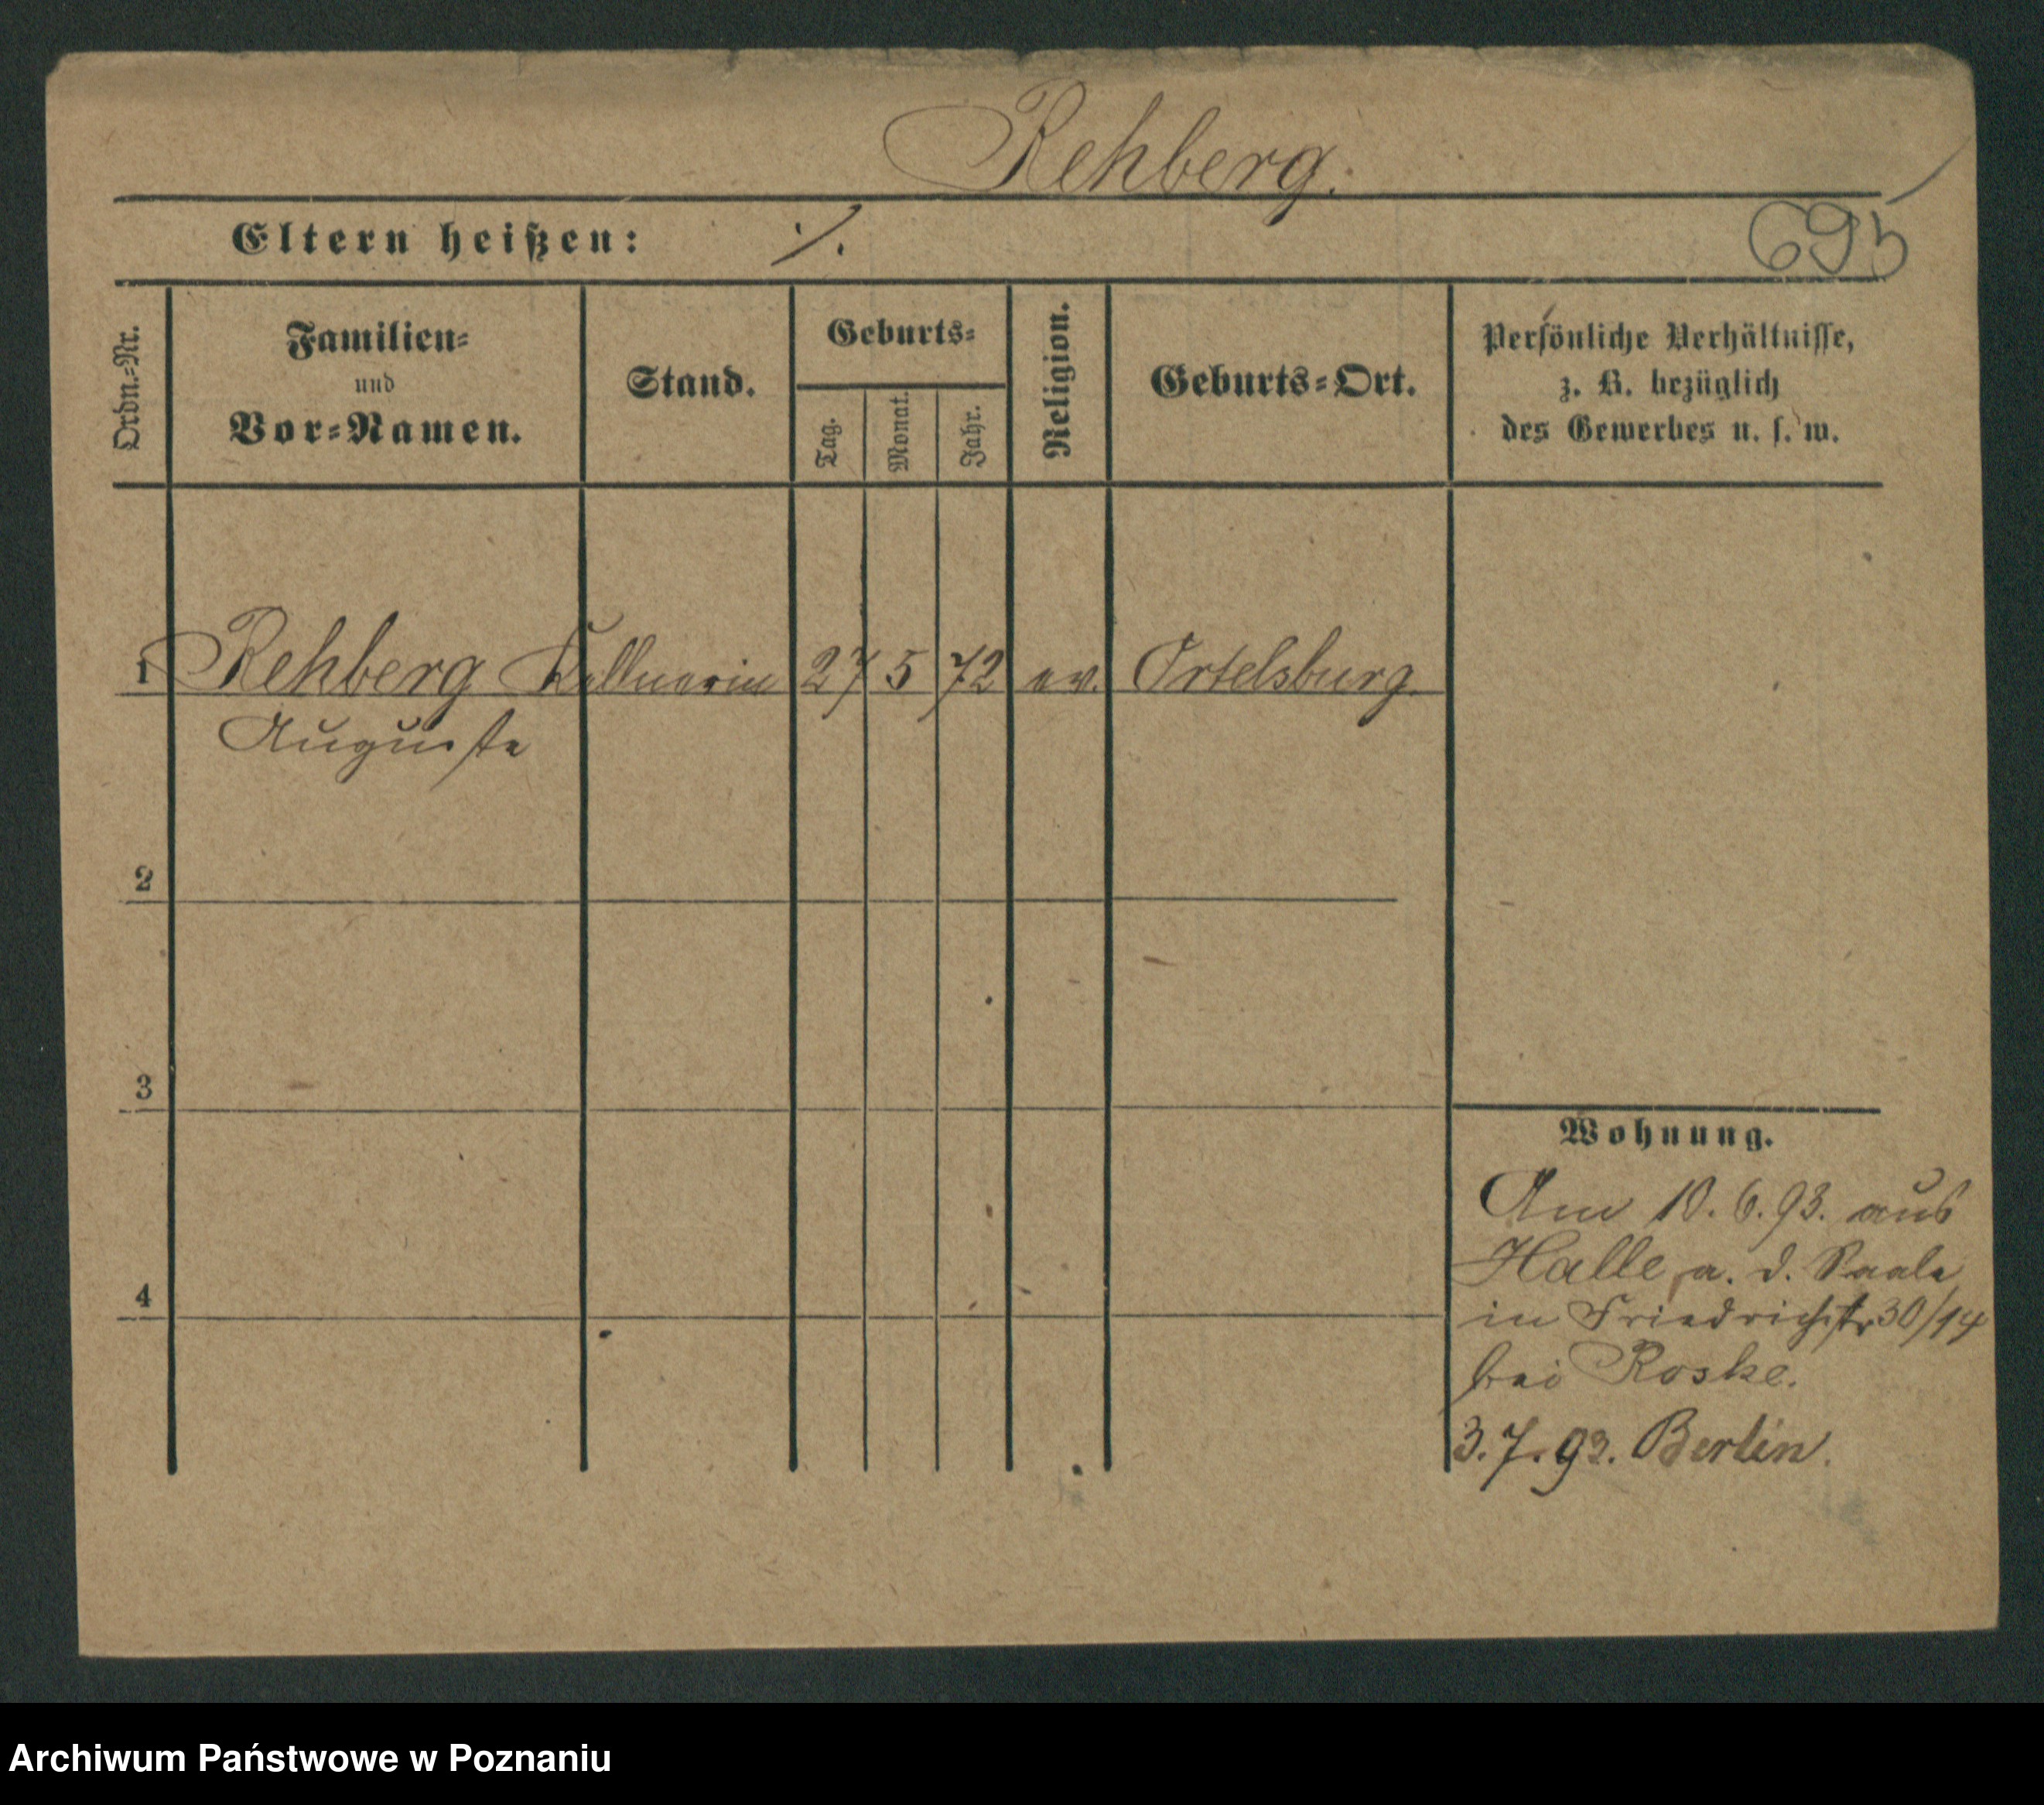 Rehberg.
Eltern heißen: ./.
695
Ordn.-Nr.
Familien-
und
Vor-Namen.
Stand.
Geburts-
Tag.
Monat.
Jahr.
Religion.
Geburts-Ort.
Persönliche Verhältnisse,
z. B. bezüglich
des Gewerbes u. s. w.
1 Rehberg Kellnerin 27 5 72 ev. Ortelsburg.
Auguste
2
3
4
Wohnung.
Am 10. 6. 93. aus
Halle a. d. Saale
in Friedrichstr 30/14
bei Roske.
3. 7. 93. Berlin.
Archiwum Państwowe w Poznaniu